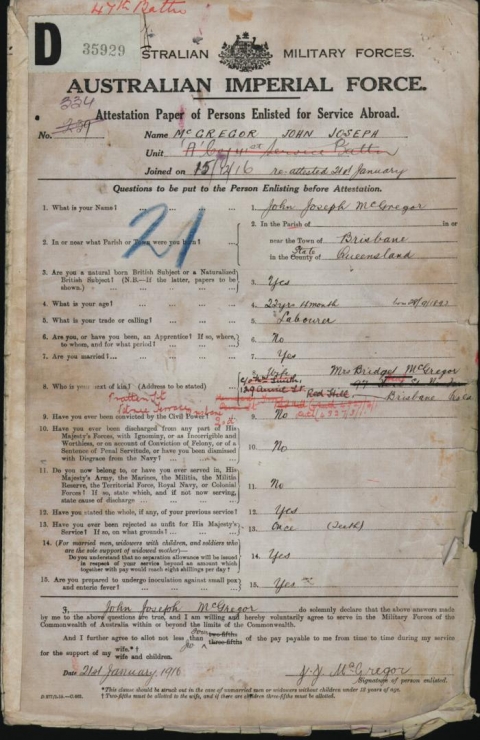 47th Battn
D 35929
AUSTRALIAN MILITARY FORCES.
AUSTRALIAN IMPERIAL FORCE.
334
Attestation Paper of Persons Enlisted for Service Abroad.
No. 239 Name McGREGOR JOHN JOSEPH
Unit
Joined on 15/2/16 re-attested 21st January
Questions to be put to the Person Enlisting before Attestation.
21
1. What is your Name? 1. John Joseph McGregor
2. In or near what Parish or Town were you born? 2. In the Parish of in or
near the Town of Brisbane
in the County of State Queensland
3. Are you a natural born British Subject or a Naturalized British Subject? (N.B.—If the latter, papers to be shown.) 3. Yes
4. What is your age? 4. 23yrs month
5. What is your trade or calling? 5. Labourer
6. Are you, or have you been, an Apprentice? If so, where, to whom, and for what period? 6. No
7. Are you married? 7. Yes
8. Who is your next of kin? (Address to be stated) 8. Wife Mrs Bridget McGregor
Red Hill, Brisbane
9. Have you ever been convicted by the Civil Power? 9. No
10. Have you ever been discharged from any part of His Majesty's Forces, with Ignominy, or as Incorrigible and Worthless, or on account of Conviction of Felony, or of a Sentence of Penal Servitude, or have you been dismissed with Disgrace from the Navy? 10. No
11. Do you now belong to, or have you ever served in, His Majesty's Army, the Marines, the Militia, the Militia Reserve, the Territorial Force, Royal Navy, or Colonial Forces? If so, state which, and if not now serving, state cause of discharge 11. No
12. Have you stated the whole, if any, of your previous service? 12. Yes
13. Have you ever been rejected as unfit for His Majesty's Service? If so, on what grounds? 13. Once (Teeth)
14. (For married men, widowers with children, and soldiers who are the sole support of widowed mother)—
Do you understand that no separation allowance will be issued in respect of your service beyond an amount which together with pay would reach eight shillings per day? 14. Yes
15. Are you prepared to undergo inoculation against small pox and enteric fever? 15. Yes
I, John Joseph McGregor do solemnly declare that the above answers made
by me to the above questions are true, and I am willing and hereby voluntarily agree to serve in the Military Forces of the
Commonwealth of Australia within or beyond the limits of the Commonwealth.
And I further agree to allot not less than two-fifths three-fifths of the pay payable to me from time to time during my service
for the support of my wife.*†
wife and children.
Date 21st January 1916 J. J. McGregor
Signature of person enlisted.
*This clause should be struck out in the case of unmarried men or widowers without children under 18 years of age.
†Two-fifths must be allotted to the wife, and if there are children three-fifths must be allotted.